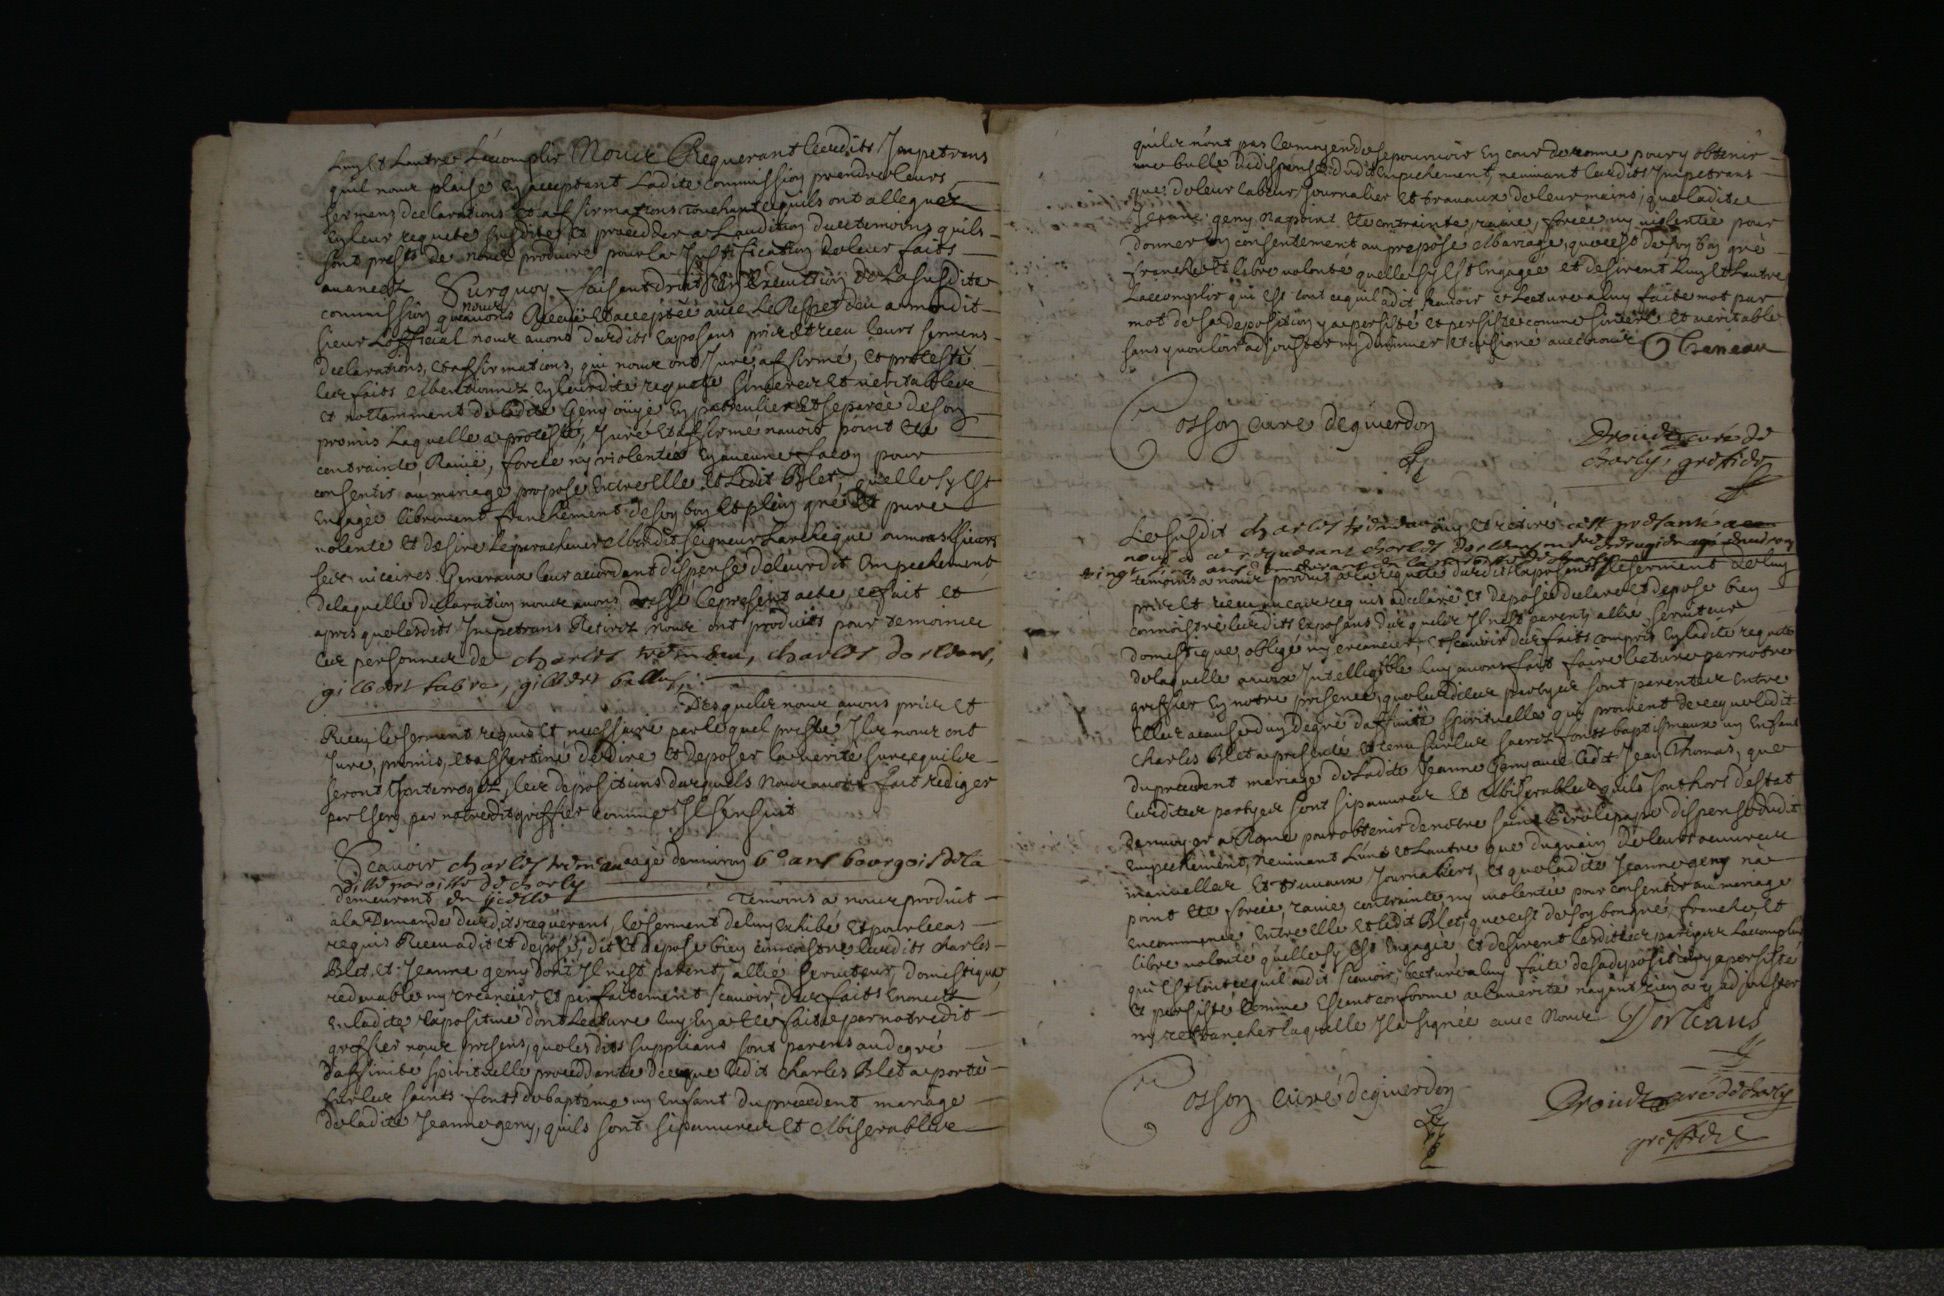 Luy et Lautre Lácomplir Nous Requerant lesdits Impetrans
quil nous plaise en acceptant Ladite commission prendre leurs
sermens declarations et affirmations touchant cequils ont allegués
en leur requete susdite et proceder a Laudition des temoins quils
sont prests de nous produire pour la Justification de leur faits
avancez Surquoy faisant droit en Execution de La susdite
commission que nous avons Receüe et acceptée avec Le Respet deü a mondit
sieur Lofficial nous avons desdits Exposans pris et receu leurs sermens
declarations, et affirmations, qui nous ont Juré, affirmé, et protesté
les faits Mentionnez en leurdite requete sinceres et veritables
et nottamment deladite Geny oüye en particulier et separée de son
promis Laquelle a protesté, Juré et affirmé navoir point eté
contrainte Ravie, forcée ny violentée en aucune facon pour
consentir au mariage proposé entre elle et Ledit Blet, quelle sy est
engagée librement franchement de son bon et plein gré et pure
volonté et desire le parachever Mondit seigneur Larcheque ou messieurs
ses vicaires Generaux leur acordant dispense de leurdit Empechement,
delaquelle declaration nous avons dressé le present acte, ce fait et
apres que lesdits Impetrans Retirez nous ont produits pour temoins
les personnes de charles trimeau, charles dorleans,
gilbert fabre, gilbert ballu
Desquels nous avons pris et
Receu le serment requis et necessaire par lequel presté Ils nous ont
Juré, promis, et assertiné de dire et deposer la verité sur ce quils
seront Interrogez, les depositions desquels Nous avons fait rediger
par Escry par notredit greffier comme Il sensuit
Scavoir charles trimeau aagé denviron 60 ans bourgois de la
ditte paroisse de charly
demeurant en icelle temoins a nous produit
a la Demande desdits requerant, le serment de luy exhibé et pour le cas
requis Receu a dit et deposé, dit et depose bien connoistre lesdits charles
Blet, et Jeanne geny dont Il nest parent, allié serviteur, domestique,
redevable ny creancier, et parfaitement scavoir des faits enoncez
en ladite Exposition dont Lecture luy en a eté faite par notredit
greffier nous presens, que lesdits supplians sont parens au degré
daffinité spirituelle procedante de ce que ledit charles Blet a porté
sur les saints fonts de baptéme un Enfant du precedent mariage
de ladite Jeanne geny, quils sont si pauvres et Miserables
quils nónt pas le moyen de se pourvoir en cour de rome pour y obtenir
une bulle de dispense dudit Empechement, ne vivant lesdits Impetrans
que de leur labeur Journalier et travaux de leur mains, que ladite
Jeanne geny na point eté contrainte, ravie, forcée ny violentée pour
donner son consentement au proposé Mariage, que cest de son bon gré
franche et libre volonté quelle sy est engagée et desirent Luy et Lautre
Laccomplir qui est tout ce quil a dit scavoir et Lecture a luy faite mot par
mot de sa deposition y a persisté et persiste comme sincere et veritable
sans y vouloir adjouster ny diminuer et a signé avec nous C Trimeau
Cosson curé de giverdon
Droüet curé de
charly, greffier
Le susdit charles trimeau ouy et retiré cest presanté a
nous a ce requerant charles Dorleans
vingt cinq ans
temoins a nous produit a la requete desdits Exposants le serment de luy
pris et receu au cas requis a declaré et deposé declare et depose bien
connoistre lesdits Exposans desquels Il nest parent, allié, serviteur
domestique, obligé ny creancier, et scavoir des faits compris en ladite requete
de laquelle a voix Intelligible luy avons fait faire lecture par notre
greffier en notre presence, que lesdites partyes sont parentes entre
elles a cause dun degré daffinité spirituelle qui provient de ce que ledit
charles Blet a presenté et tenu sur les sacrez fonts baptismaux un enfant
du precedent mariage de Ladite Jeanne Geny avec ledit Jean Thomas, que
lesdites partyes sont si pauvres et Miserables quils sont hors destat
denvoyer a Rome pour obtenir de notre saint Pere le pape dispense dudit
Empechement, ne vivant Lúne et Lautre que du gain de leurs oeuvres
manuelles et travaux Journaliers, et que ladite Jeanne geny na
point eté forcée, ravie, contrainte ny violentée pour consentir au mariage
encommencé entre elle et ledit Blet, que cest de son bon gré, franche, et
libre volonté quelle sy est engagée et desirent lesdites partyes Laccomplir
qui est tout ce quil a dit scavoir, lecture a luy faite de sa deposition y a persisté
et persiste comme estant conforme a la verité nayant rien a y adjouster
ny retrancher laquelle Il a signée avec Nous Dorleans
Cosson curé de giverdon
Droüet curé de charly
greffier